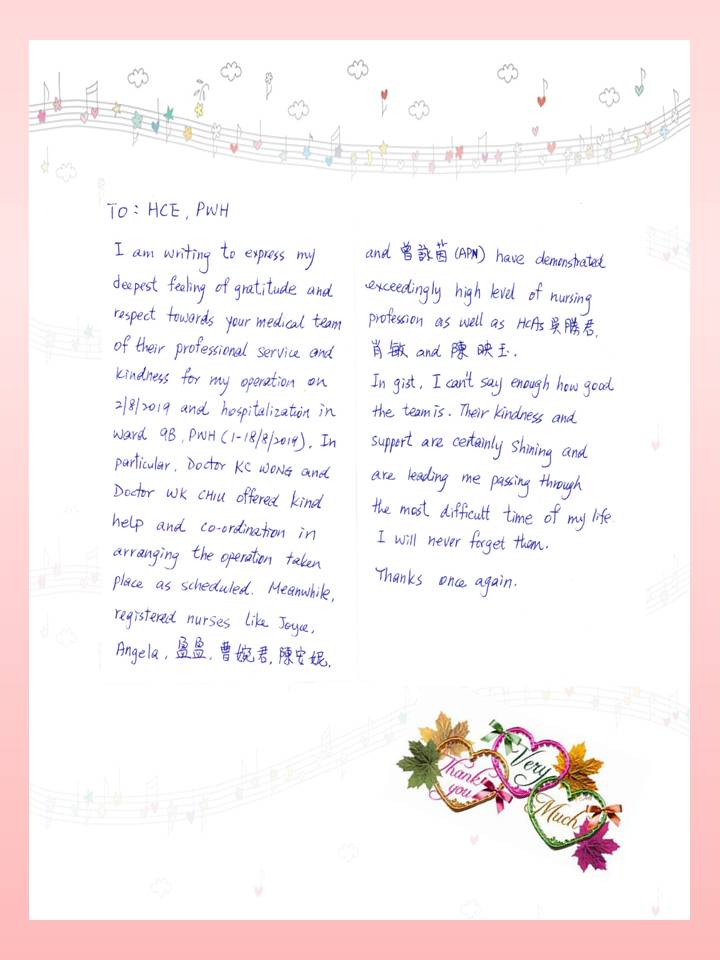 TO: HCE, PWH
I am writing to express my
deepest feeling of gratitude and
respect towards your medical team
of their professional service and
kindness for my operation on
2/8/2019 and hospitalization in
ward 9B, PWH (1-18/8/2019). In
particular, Doctor KC WONG and
Doctor WK CHIU offered kind
help and co-ordination in
arranging the operation taken
place as scheduled. Meanwhile,
registered nurses like Joyce,
Angela, 盈盈, 曹婉君, 陳安妮,
and 曾詠茵 (APN) have demonstrated
exceedingly high level of nursing
profession as well as HCAs 吳勝君,
肖敏 and 陳映玉.
In gist, I can't say enough how good
the team is. Their kindness and
support are certainly shining and
are leading me passing through
the most difficult time of my life
I will never forget them.
Thanks once again.
Thank you
Very
Much